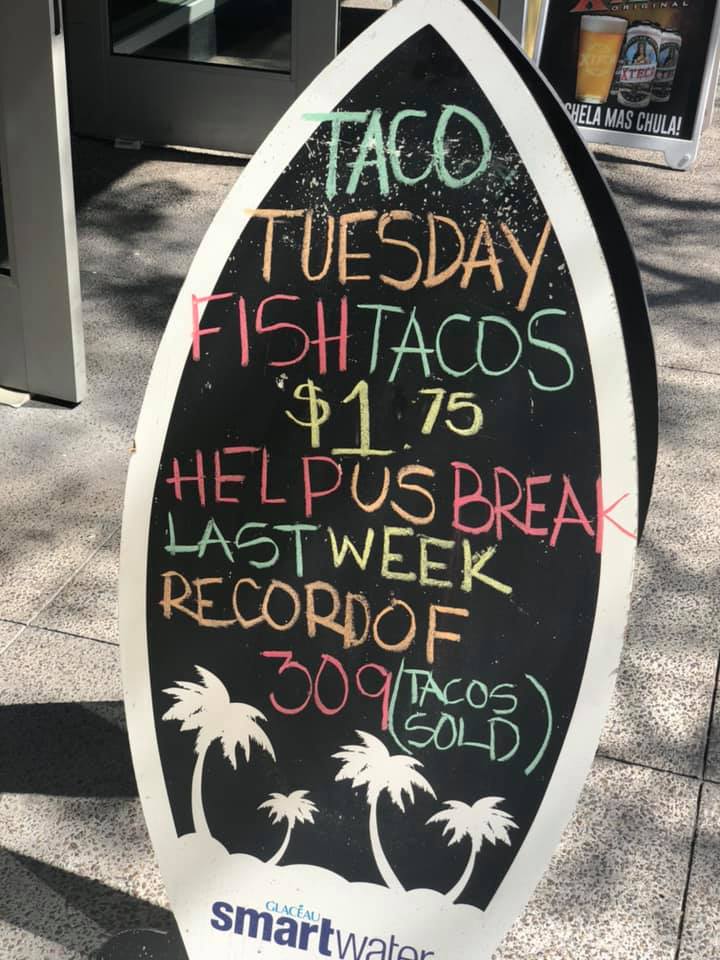 ORIGINAL
XTECA
SHELA MAS CHULA!
TACO
TUESDAY
FISH TACOS
$1.75
HELP US BREAK
LAST WEEK
RECORD OF
309 (TACOS
SOLD)
GLACÉAU
smartwater